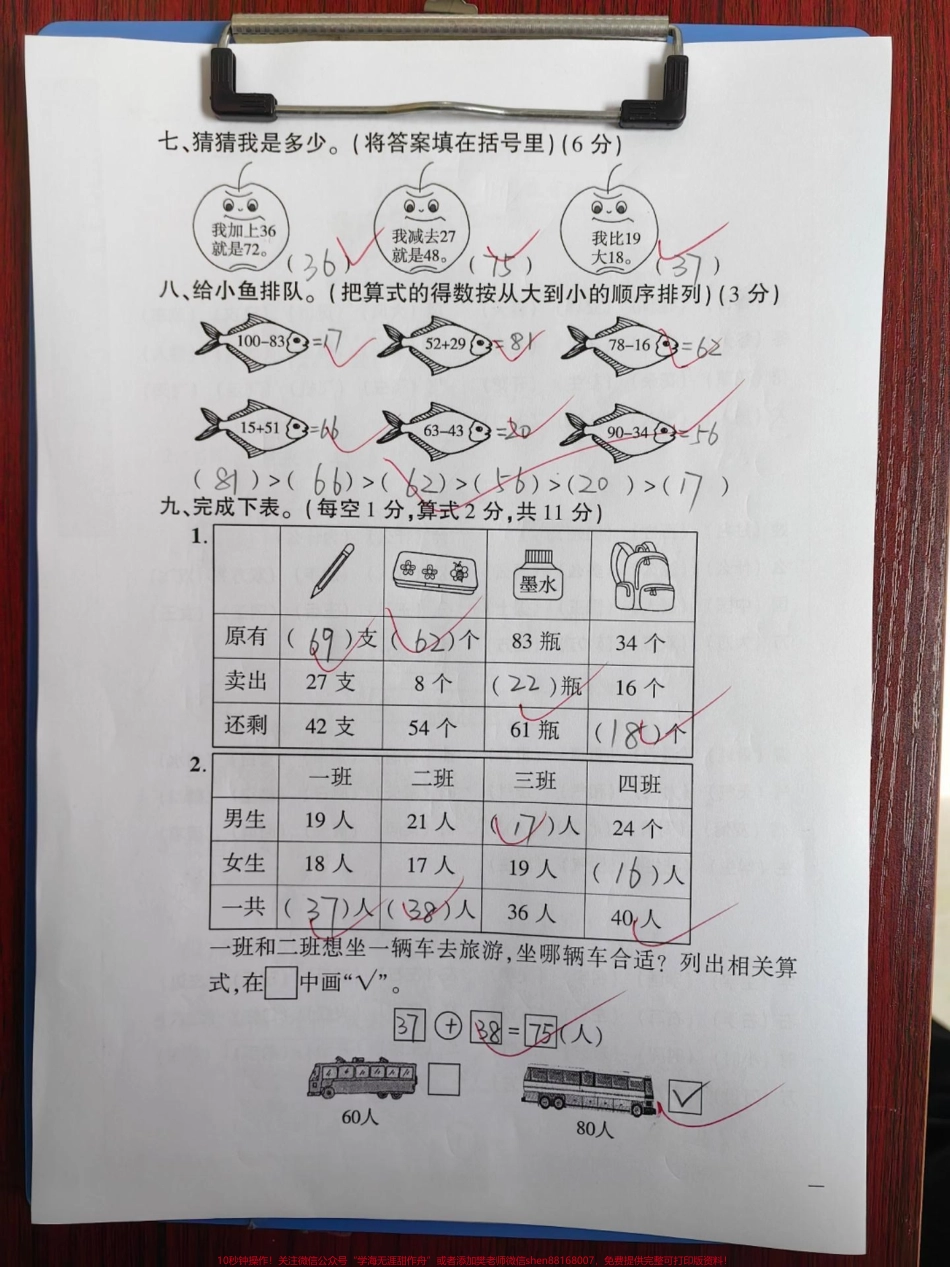 七、猜猜我是多少。(将答案填在括号里)(6分)
我加上36 我减去27 我比19
就是72。 就是48。 大18。
(36) (75) (37)
八、给小鱼排队。(把算式的得数按从大到小的顺序排列)(3分)
100-83=17 52+29=81 78-16=62
15+51=66 63-43=20 90-34=56
(81)>(66)>(62)>(56)>(20)>(17)
九、完成下表。(每空1分,算式2分,共11分)
1.
墨水
原有 (69)支 (62)个 83瓶 34个
卖出 27支 8个 (22)瓶 16个
还剩 42支 54个 61瓶 (18)个
2.
一班 二班 三班 四班
男生 19人 21人 (17)人 24个
女生 18人 17人 19人 (16)人
一共 (37)人 (38)人 36人 40人
一班和二班想坐一辆车去旅游,坐哪辆车合适?列出相关算
式,在□中画“√”。
37+38=75(人)
√
60人 80人
一
10秒钟操作!关注微信公众号“学海无涯甜作舟”或者添加樊老师微信shen88168007,免费提供完整可打印版资料!